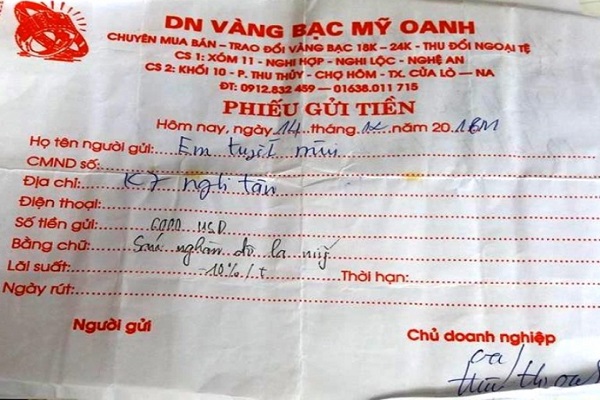 DN VÀNG BẠC MỸ OANH
CHUYÊN MUA BÁN - TRAO ĐỔI VÀNG BẠC 18K - 24K - THU ĐỔI NGOẠI TỆ
CS 1: XÓM 11 - NGHI HỢP - NGHI LỘC - NGHỆ AN
CS 2: KHỐI 10 - P. THU THỦY - CHỢ HÔM - TX. CỬA LÒ - NA
ĐT: 0912.832 459 - 01638.011 715
PHIẾU GỬI TIỀN
Hôm nay, ngày 14 tháng 12 năm 2018
Họ tên người gửi: Em tuyết
CMND số:
Địa chỉ: K7 nghi tân
Điện thoại:
Số tiền gửi: 6000 USD
Bằng chữ: Sáu nghàn đô la mỹ
Lãi suất: 10%/t Thời hạn:
Ngày rút:
Người gửi Chủ doanh nghiệp